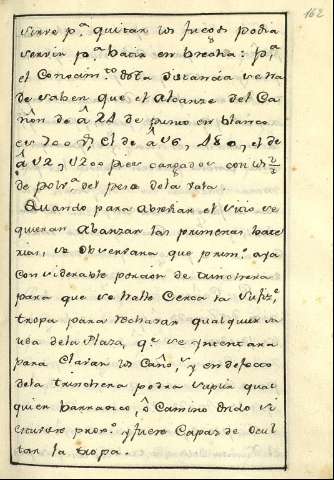 162
sirve p.ª quitar los fuegos podra
servir p.ª batir en brecha: p.ª
el Conocim.to de la distancia se ha
de saber que el alcanze del Ca
ñon de â 24 de punto en blanco
es 700 el de â 16, 480, el de
â 12, 1200 pies cargados con los 2/3
de polv.ª del peso de la vala.
Quando para Abrebiar el sitio se
quieran Abanzar las primeras bate
rias, se observara que prim.º aya
considerable porcion de trinchera
para que se halle Cerca la sufiz.e
tropa para rechazar qualquier sa
lida de la Plaza, q.e se Yntentara
para Clavar los Caño.s y en defecto
de la trinchera podra suplir qual
quier barranco, ô Camino ondo si
estuviere prox.º y fuere Capas de ocul
tar la tropa.